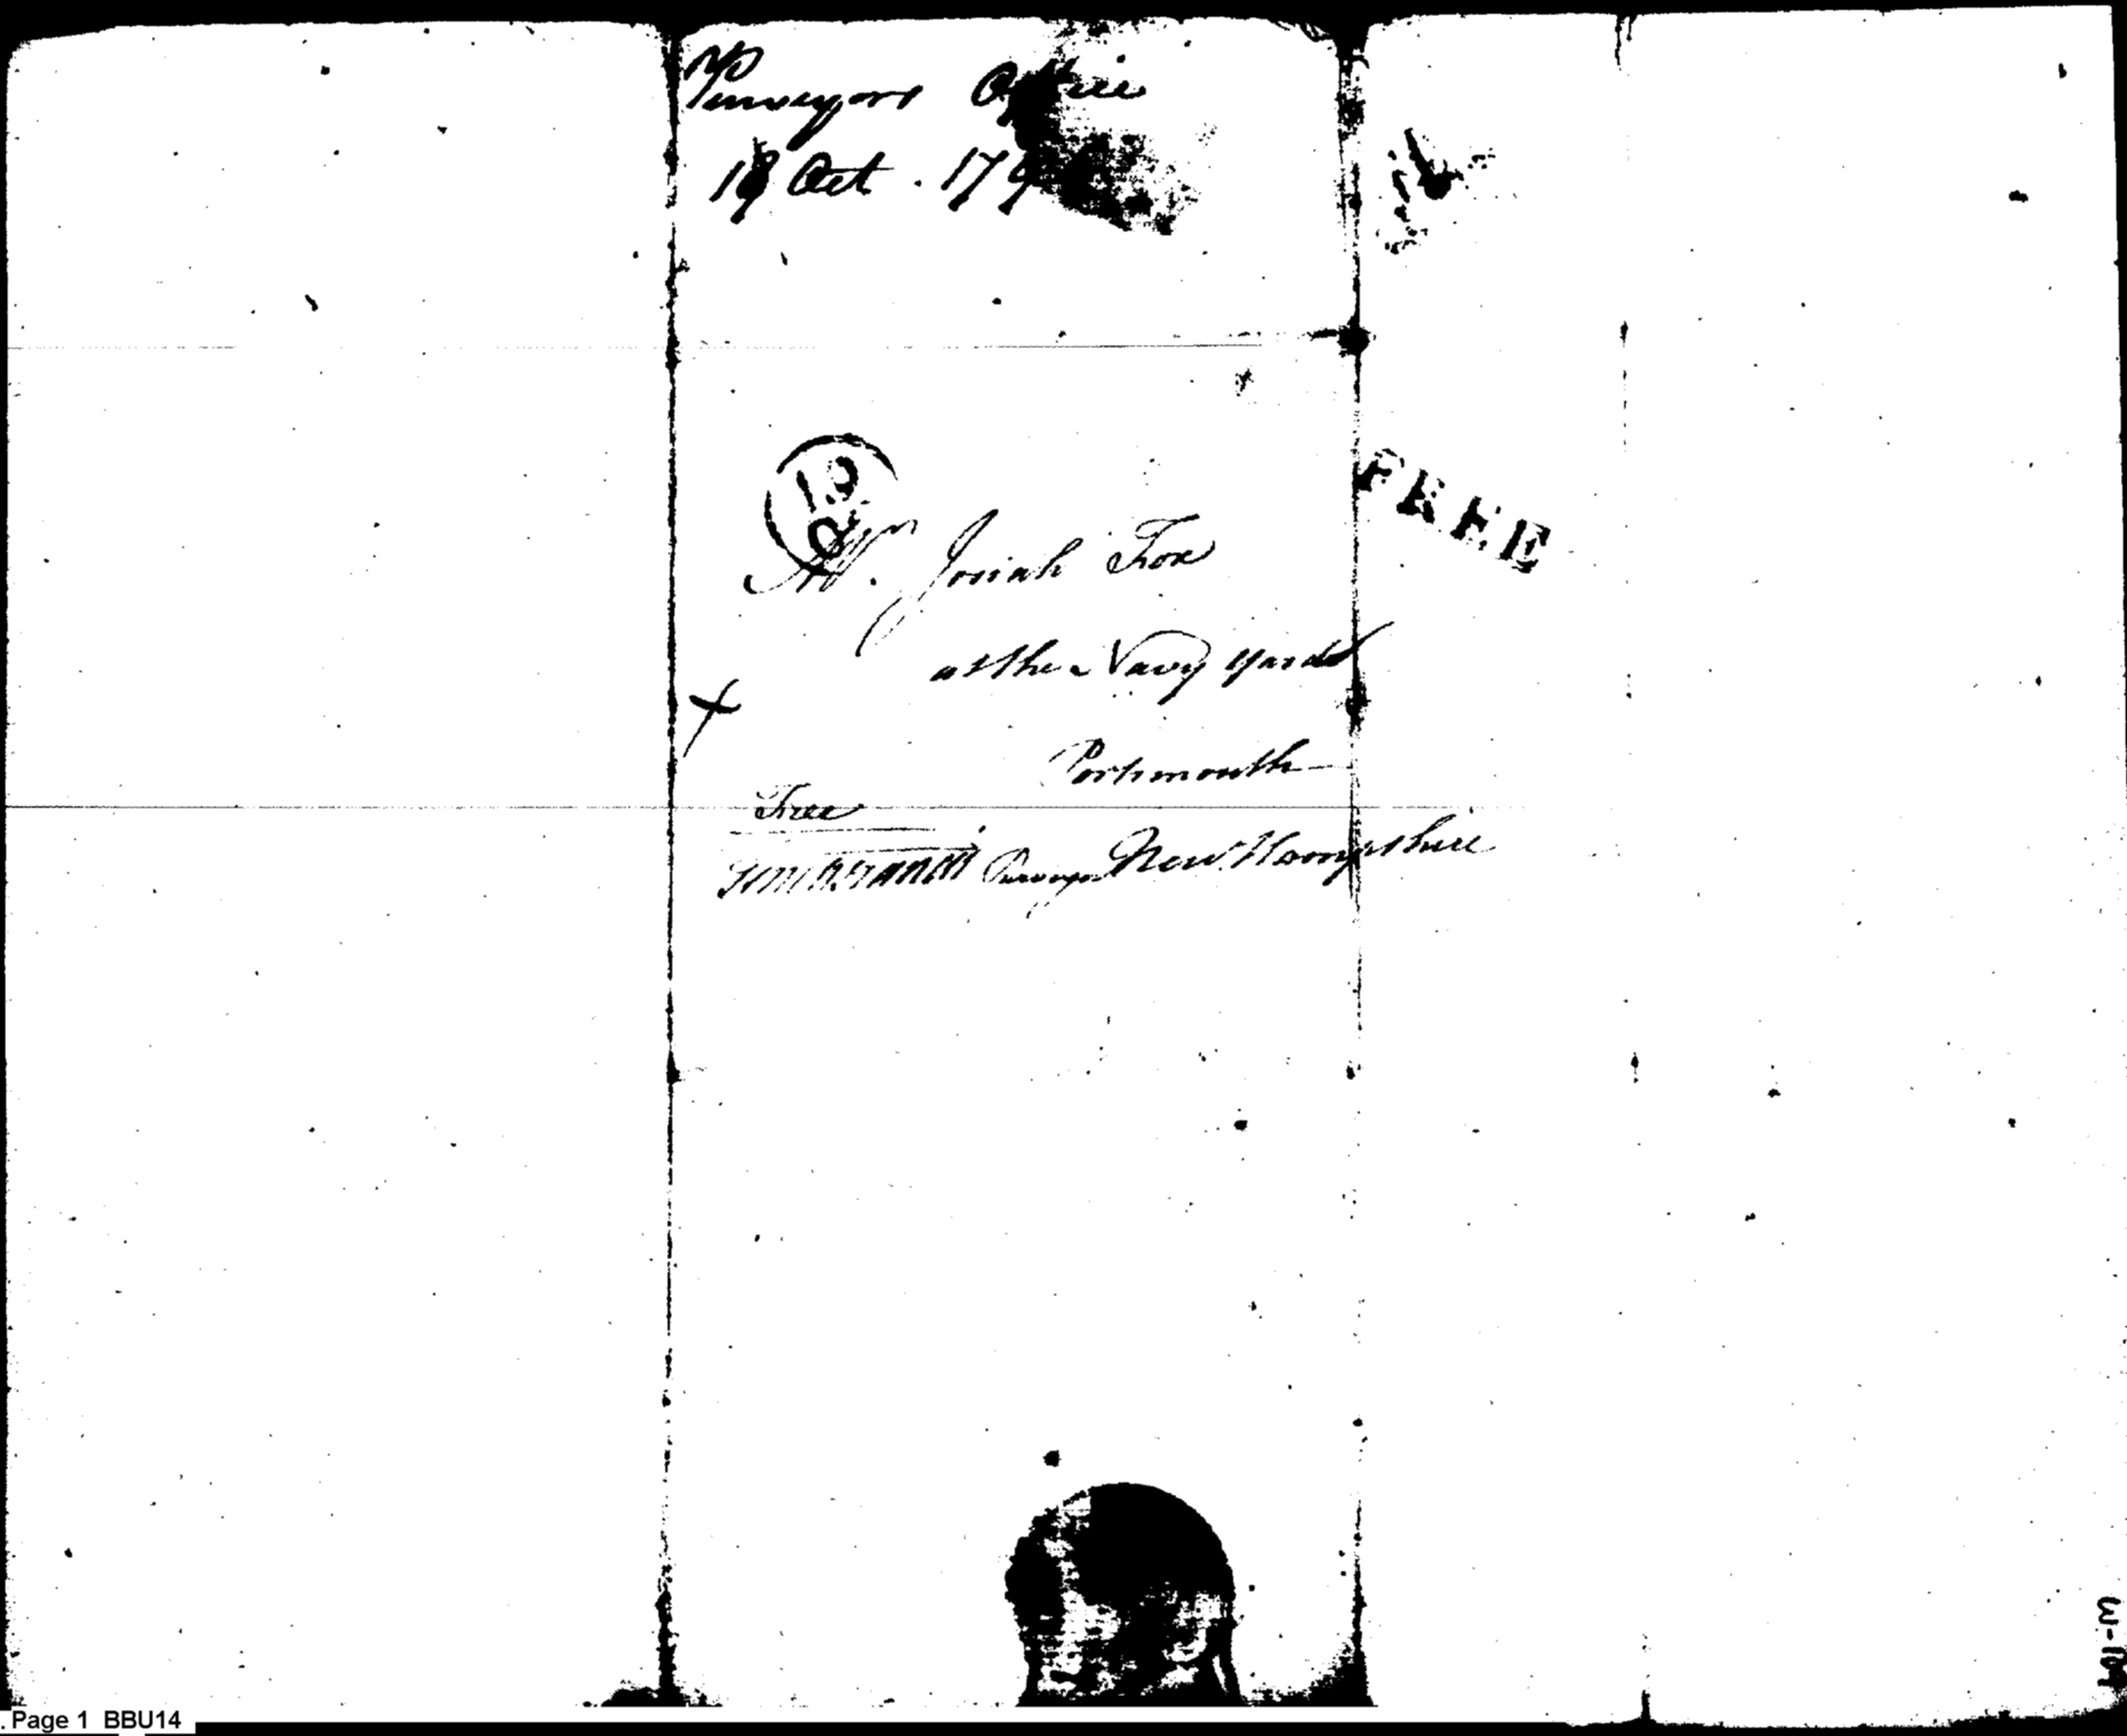 Purveyors Office
19 Oct. 179
19
O
FREE
Mr. Josiah Fox
at the Navy Yard
Portsmouth
Free
Purveyor New Hampshire
Page 1 BBU14